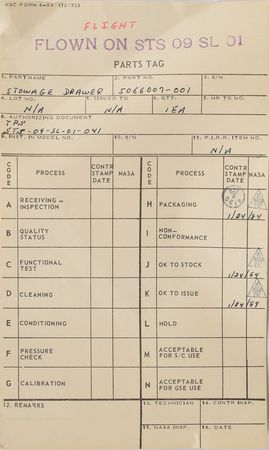 KSC FORM 4-8A (12/72)
FLIGHT
FLOWN ON STS 09 SL 01
PARTS TAG
1. PART NAME 2. PART NO. 3. S/N
STOWAGE DRAWER 5066009-001
4. LOT NO. 5. ISSUED TO 6. QTY. 7. MR TO NO.
N/A N/A 1EA
8. AUTHORIZING DOCUMENT
TPS
STS-09-SL-01-041
9. INST. IN MODEL NO. 10. S/N 11. P.I.R.R. ITEM NO.
N/A
CODE PROCESS CONTR STAMP DATE NASA CODE PROCESS CONTR STAMP DATE NASA
A RECEIVING – INSPECTION H PACKAGING 1/24/84
B QUALITY STATUS I NON- CONFORMANCE
C FUNCTIONAL TEST J OK TO STOCK 1/24/84
D CLEANING K OK TO ISSUE 1/24/84
E CONDITIONING L HOLD
F PRESSURE CHECK M ACCEPTABLE FOR S/C USE
G CALIBRATION N ACCEPTABLE FOR GSE USE
12. REMARKS 13. TECHNICIAN 14. CONTR INSP.
15. NASA INSP. 16. DATE